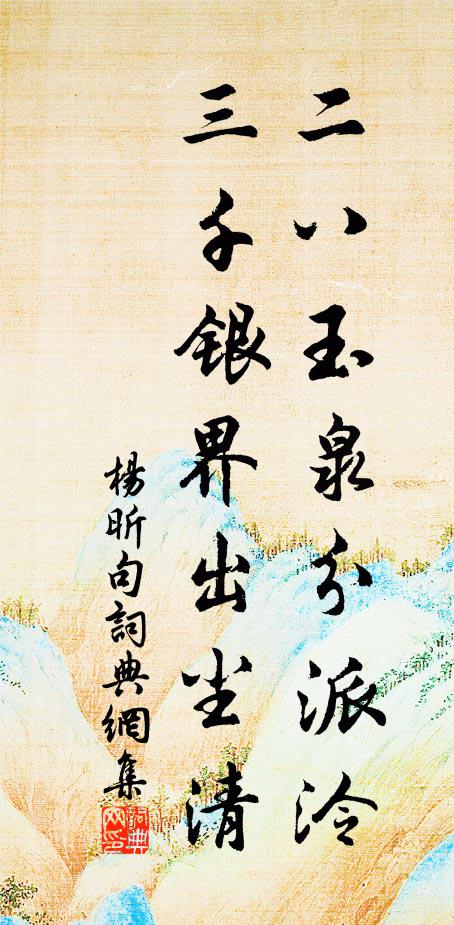 二八玉泉分派泠
三千銀界出尘清
楊昕句詞典網集
詞典网印